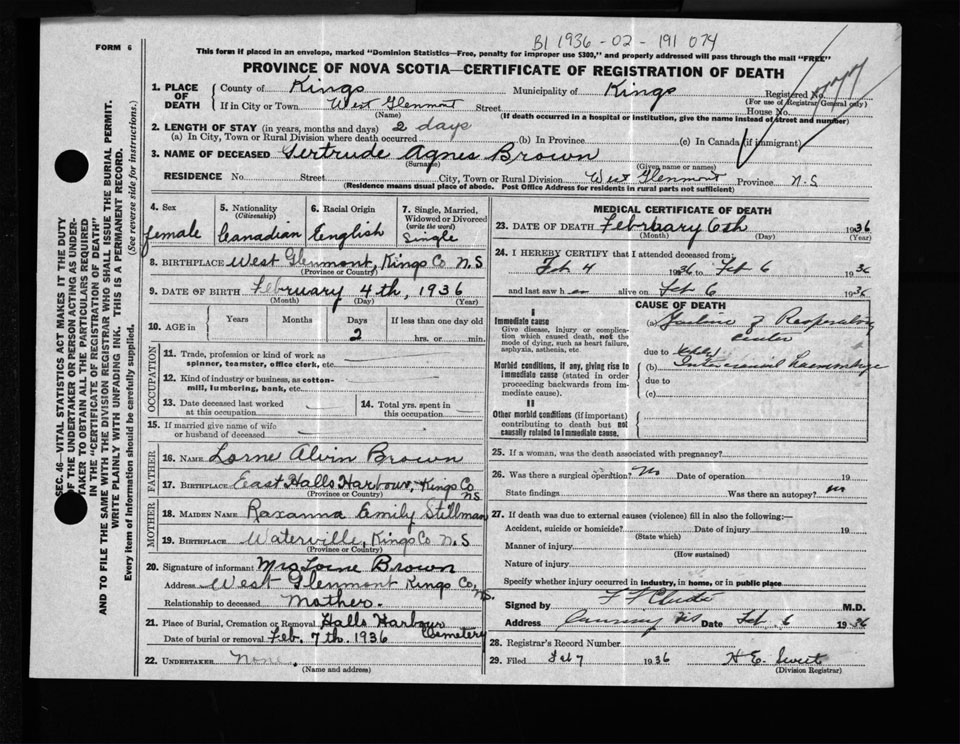 B1 1936 - 02 - 191 074
FORM 6
This form if placed in an envelope, marked "Dominion Statistics—Free, penalty for improper use $300," and properly addressed will pass through the mail "FREE"
PROVINCE OF NOVA SCOTIA—CERTIFICATE OF REGISTRATION OF DEATH
1. PLACE OF DEATH
County of Kings Municipality of Kings Registered No.
(For use of Registrar General only)
If in City or Town West Glenmont Street House No.
(Name) (If death occurred in a hospital or institution, give the name instead of street and number)
2. LENGTH OF STAY (in years, months and days) 2 days
(a) In City, Town or Rural Division where death occurred (b) In Province (c) In Canada (if immigrant)
3. NAME OF DECEASED Gertrude Agnes Brown
(Surname) (Given name or names)
RESIDENCE No. Street City, Town or Rural Division West Glenmont Province N.S
(Residence means usual place of abode. Post Office Address for residents in rural parts not sufficient)
4. Sex female
5. Nationality (Citizenship) Canadian
6. Racial Origin English
7. Single, Married, Widowed or Divorced (write the word) Single
8. BIRTHPLACE West Glenmont, Kings Co N.S
(Province or Country)
9. DATE OF BIRTH February 4th, 1936
(Month) (Day) (Year)
10. AGE in Years Months Days If less than one day old
2 hrs. or min.
OCCUPATION
11. Trade, profession or kind of work as spinner, teamster, office clerk, etc.
12. Kind of industry or business, as cotton-mill, lumbering, bank, etc.
13. Date deceased last worked at this occupation
14. Total yrs. spent in this occupation
15. If married give name of wife or husband of deceased
FATHER
16. NAME Lorne Alvin Brown
17. BIRTHPLACE East Halls Harbour, Kings Co NS
(Province or Country)
MOTHER
18. MAIDEN NAME Roxanna Emily Stillman
19. BIRTHPLACE Waterville, Kings Co N.S
(Province or Country)
20. Signature of informant Mrs Lorne Brown
Address West Glenmont Kings Co, NS.
Relationship to deceased Mother.
21. Place of Burial, Cremation or Removal Halls Harbour Cemetery
Date of burial or removal Feb. 7th. 1936
22. UNDERTAKER None.
(Name and address)
MEDICAL CERTIFICATE OF DEATH
23. DATE OF DEATH February 6th 1936
(Month) (Day) (Year)
24. I HEREBY CERTIFY that I attended deceased from
Feb 4 1936 to Feb 6 1936
and last saw h er alive on Feb 6 1936
CAUSE OF DEATH
I
Immediate cause
Give disease, injury or complication which caused death, not the mode of dying, such as heart failure, asphyxia, asthenia, etc.
(a) Failure of Respiratory center
due to
Morbid conditions, if any, giving rise to immediate cause (stated in order proceeding backwards from immediate cause).
(b) Intercranial Haemorrhage
due to
(c)
II
Other morbid conditions (if important) contributing to death but not causally related to immediate cause.
25. If a woman, was the death associated with pregnancy?
26. Was there a surgical operation? No Date of operation 19
State findings Was there an autopsy? no
27. If death was due to external causes (violence) fill in also the following:—
Accident, suicide or homicide? Date of injury 19
(State which)
Manner of injury
(How sustained)
Nature of injury
Specify whether injury occurred in industry, in home, or in public place
Signed by M.D.
Address Canning NS Date Feb 6 1936
28. Registrar's Record Number
29. Filed Feb 7 1936 H E. Sweet
(Division Registrar)
SEC. 46—VITAL STATISTICS ACT MAKES IT THE DUTY
OF THE UNDERTAKER OR PERSON ACTING AS UNDER-
TAKER TO OBTAIN ALL THE PARTICULARS REQUIRED
IN THE "CERTIFICATE OF REGISTRATION OF DEATH"
AND TO FILE THE SAME WITH THE DIVISION REGISTRAR WHO SHALL ISSUE THE BURIAL PERMIT.
WRITE PLAINLY WITH UNFADING INK. THIS IS A PERMANENT RECORD.
Every item of information should be carefully supplied. (See reverse side for instructions.)